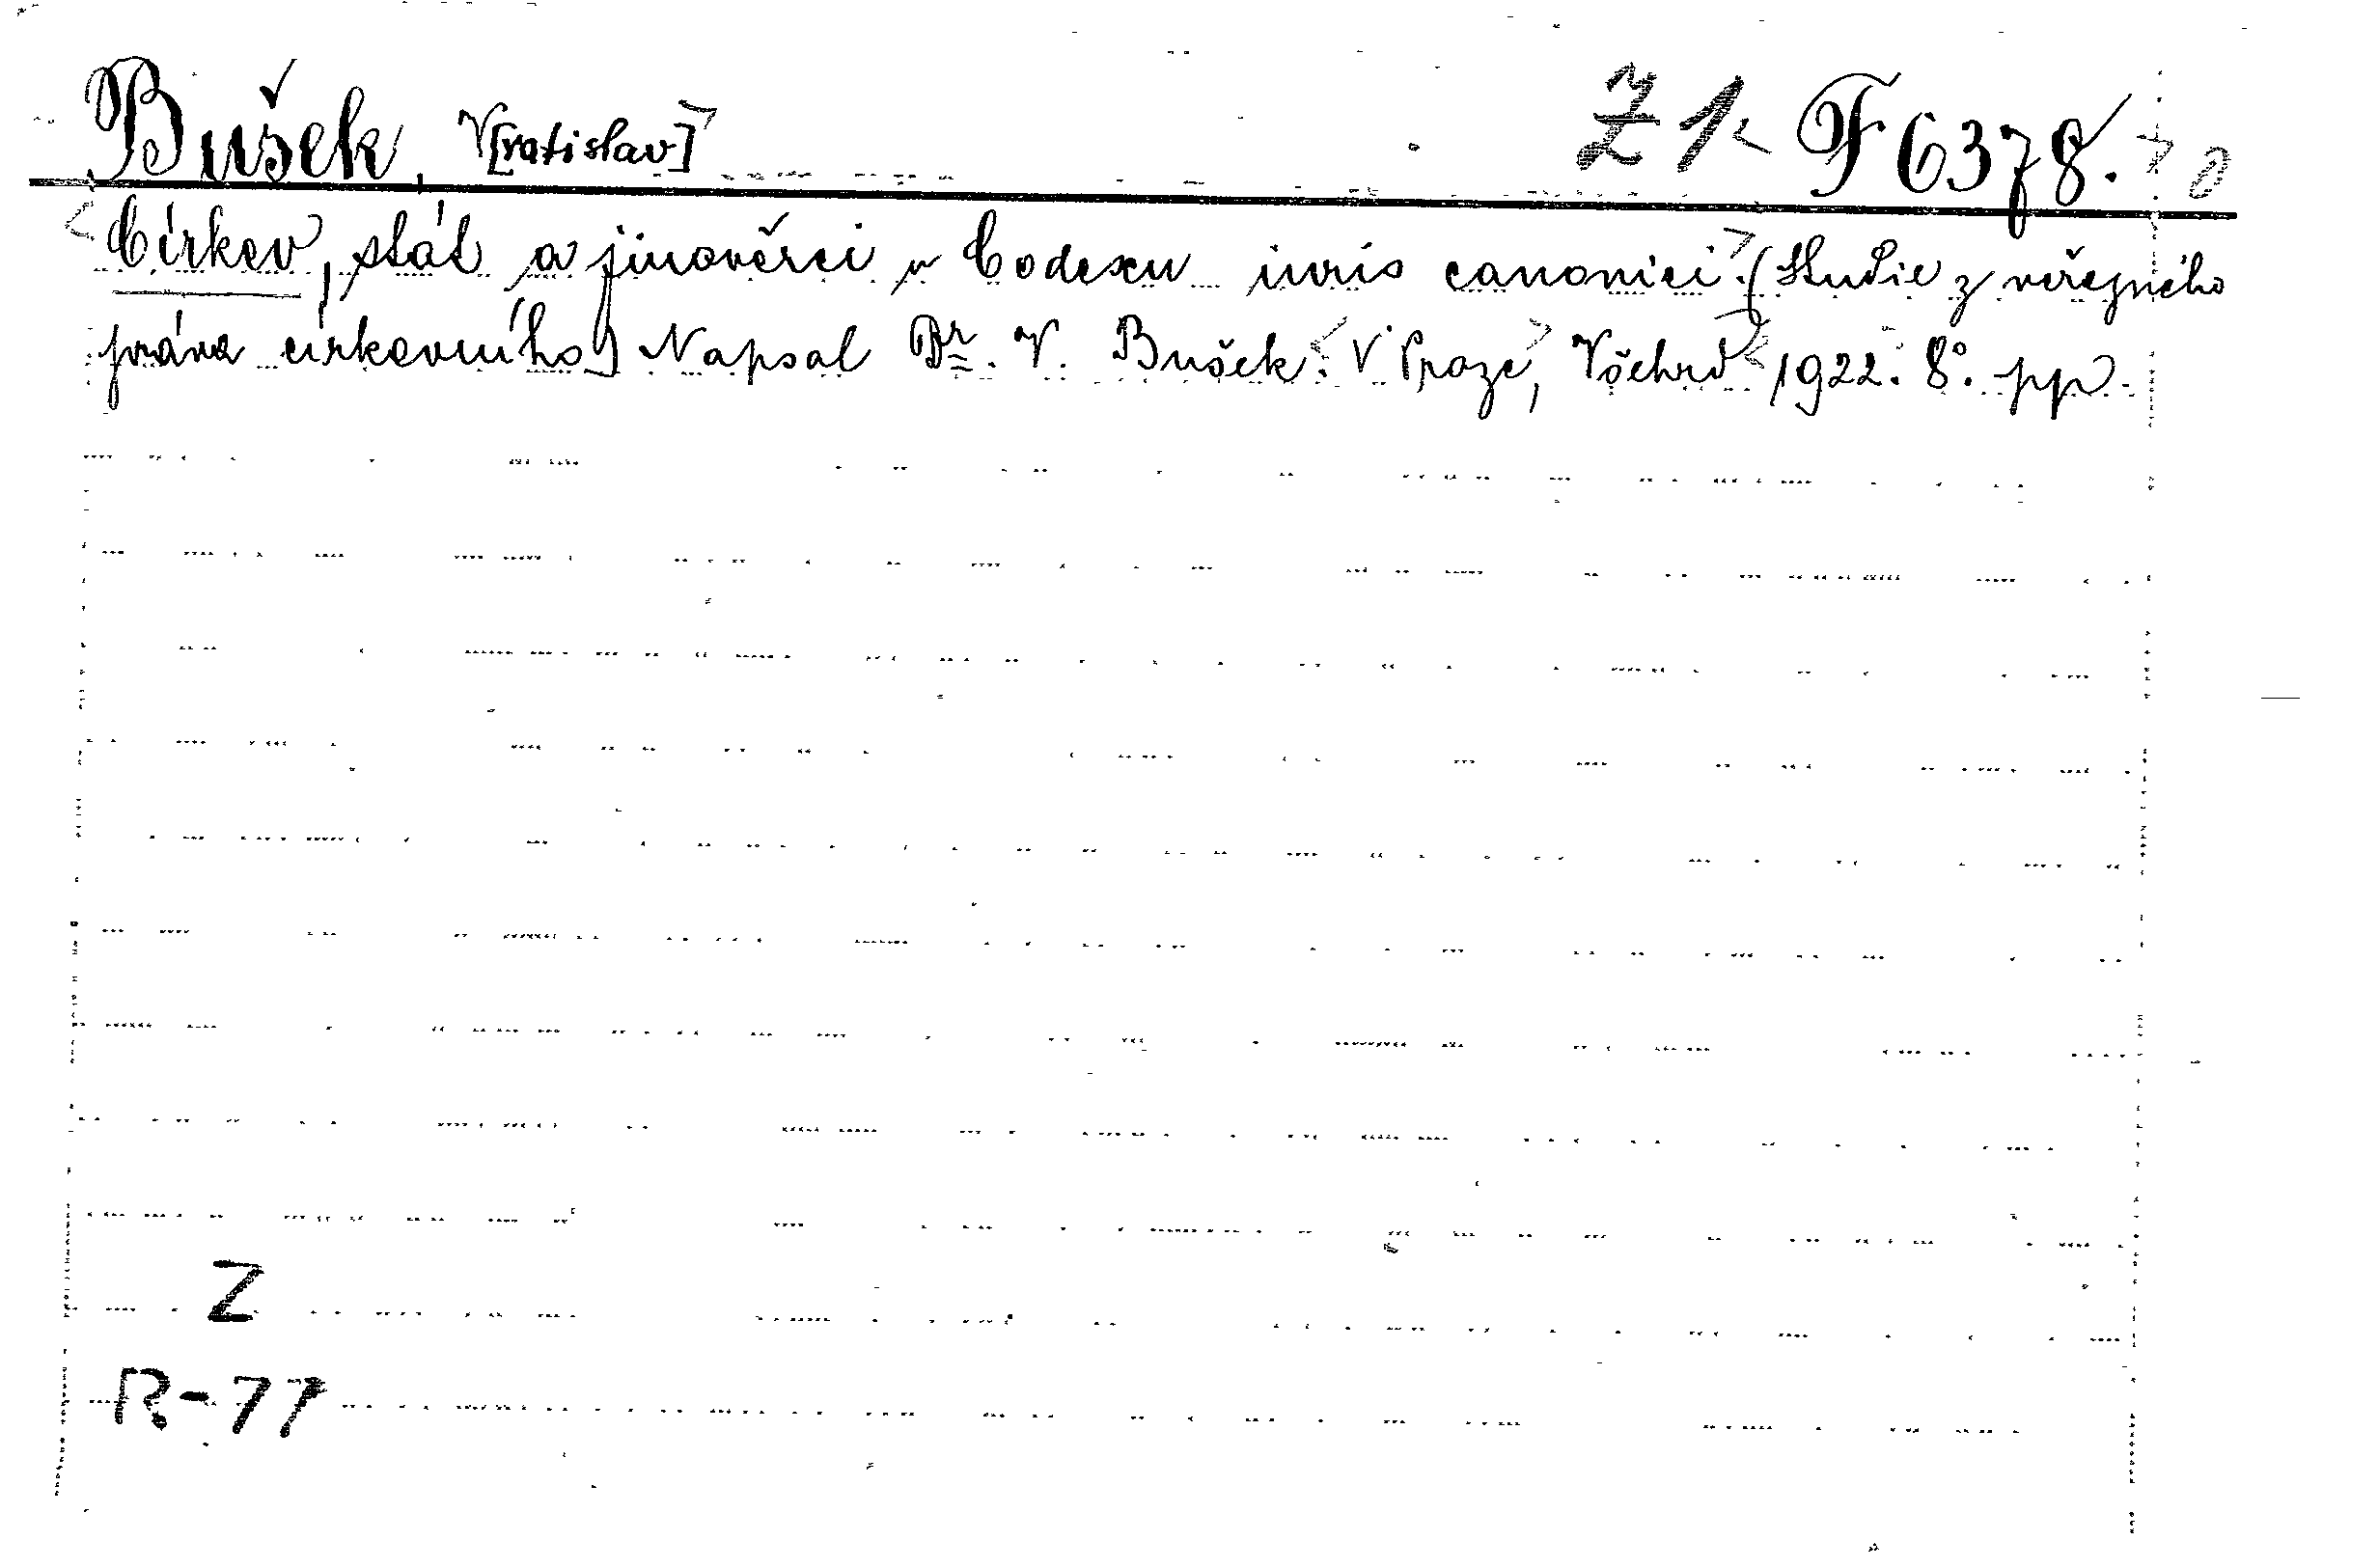 Bušek, V[ratislav] Z 1 F 6378.
Církev, stát a jinověrci v Codexu iuris canonici. (Studie z veřejného
práva církevního) Napsal Dr. V. Bušek. V Praze, Všehrd 1922. 8°. pp.
Z
R-77